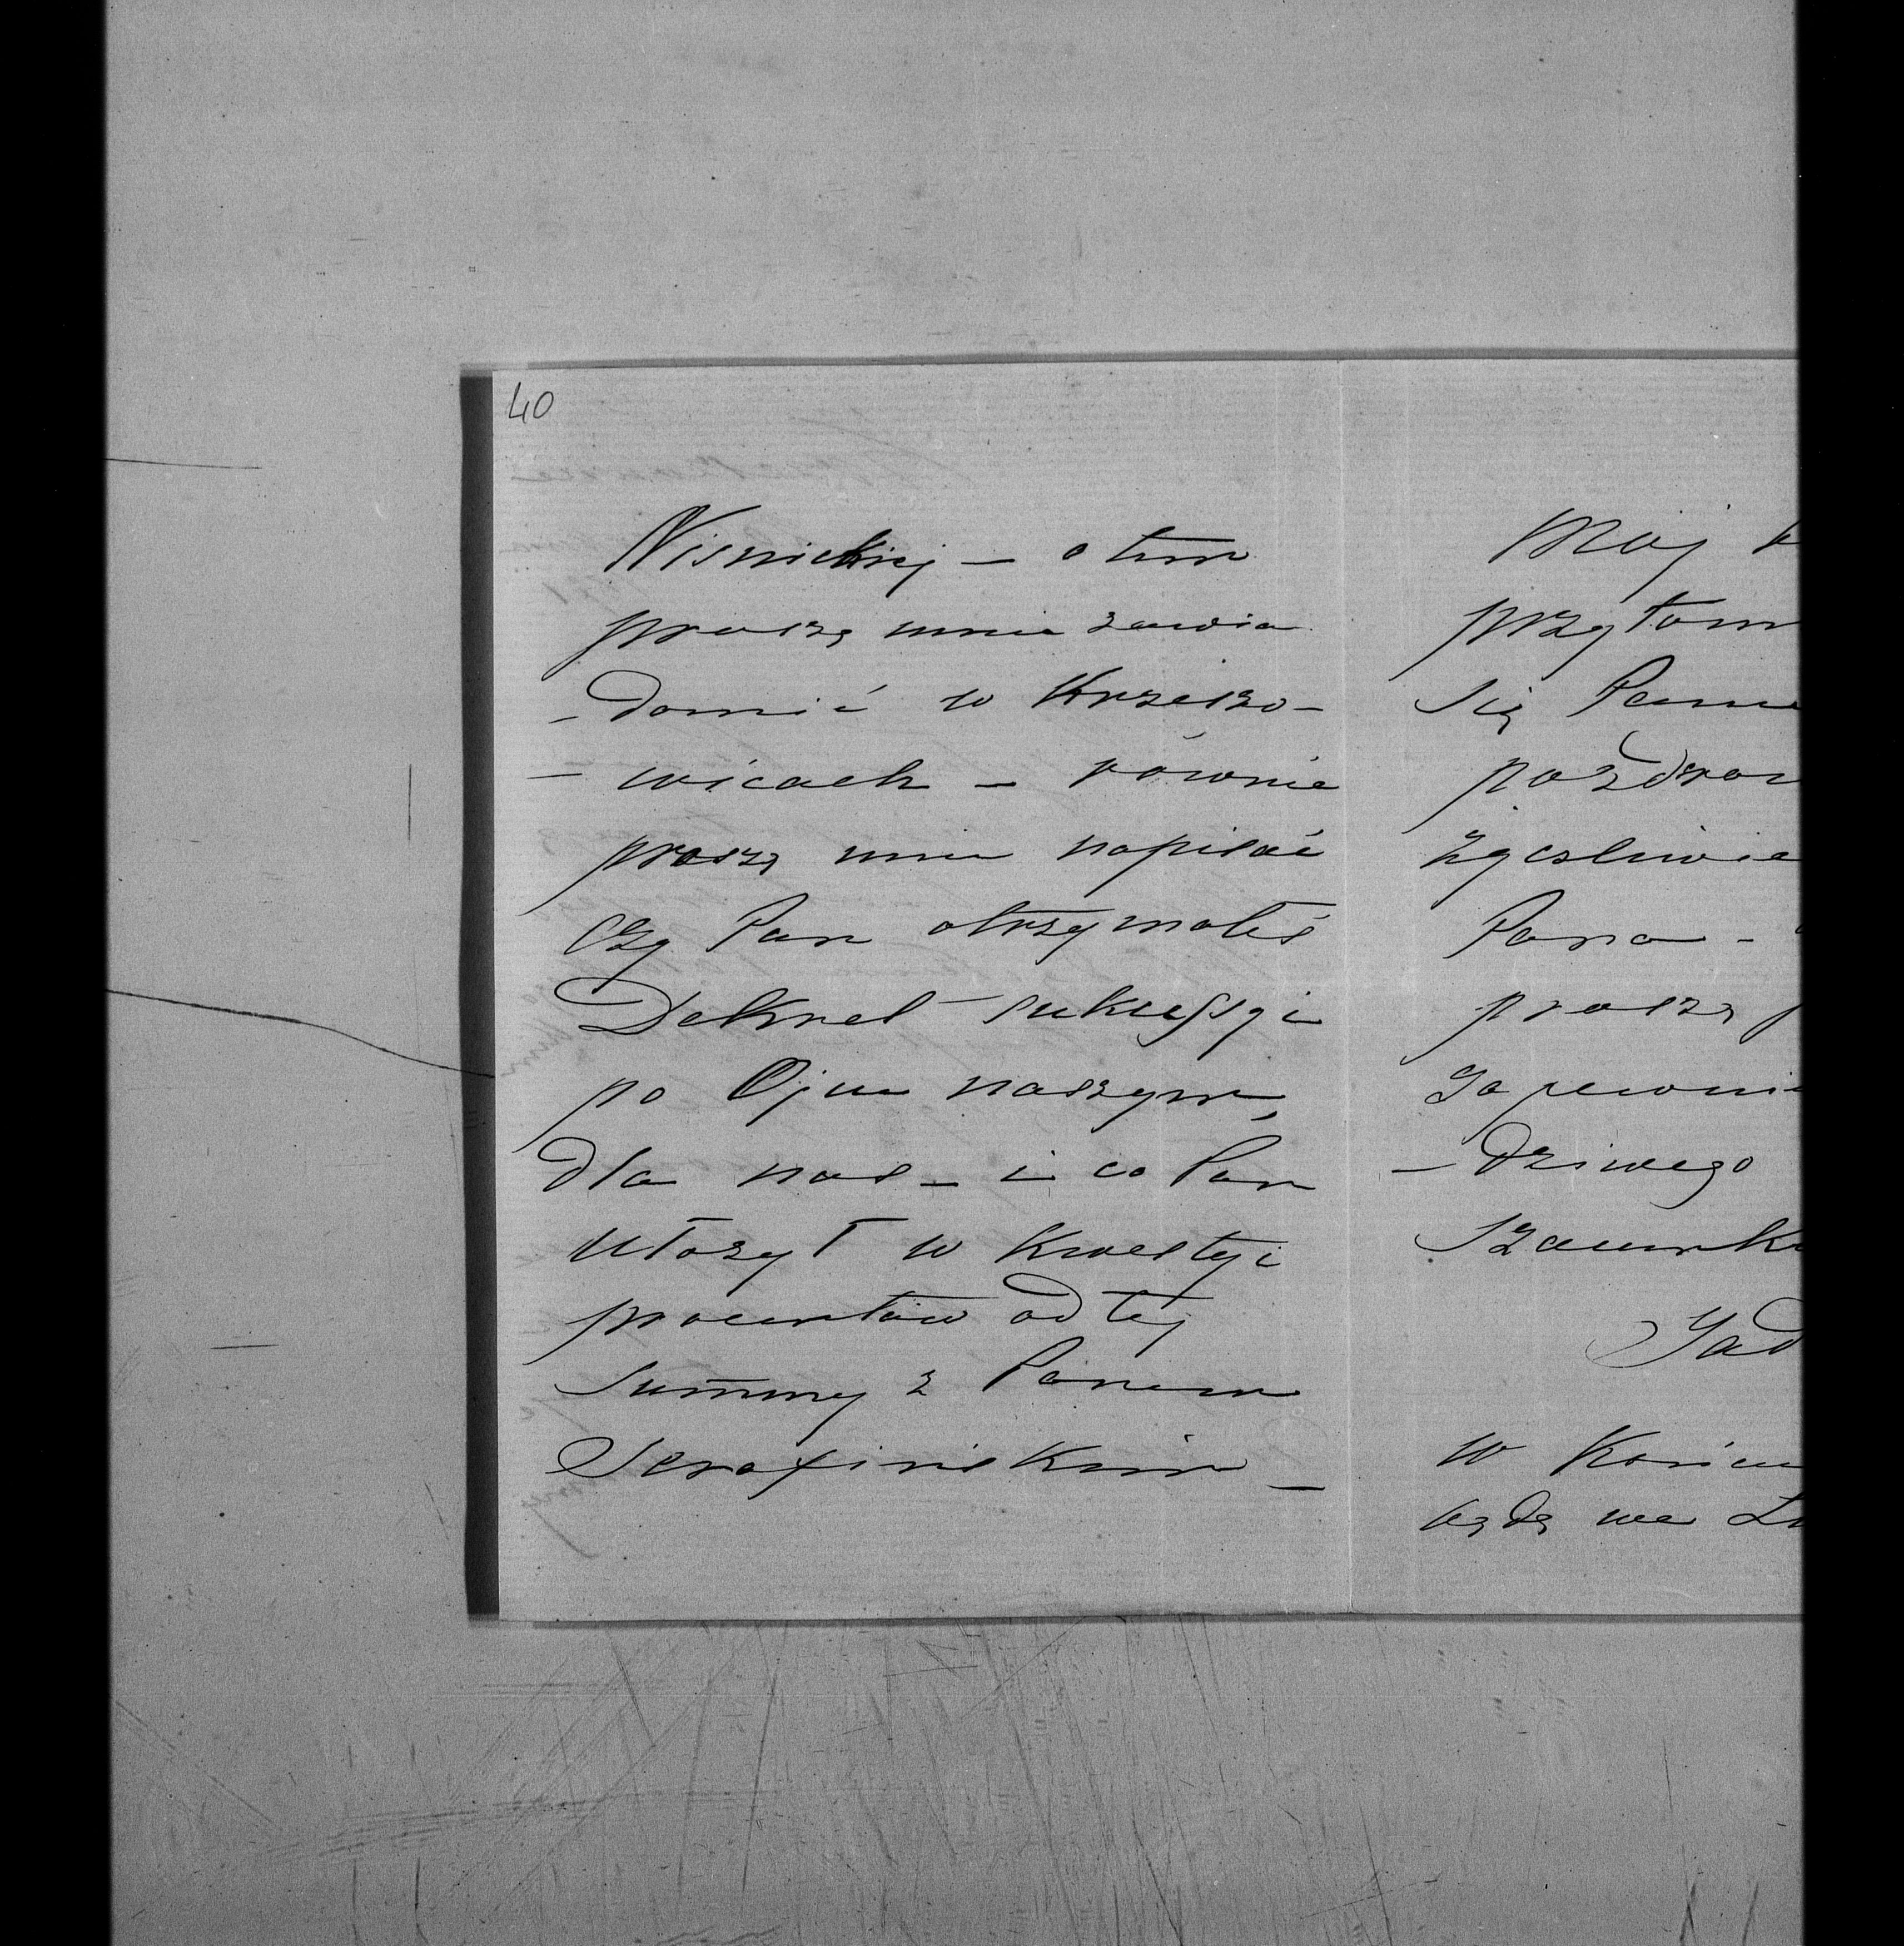 40
Wisnickiej – o tem
proszę mnie zawia
– domić w Krzeszo–
– wicach – równie
proszę mnie napisać
czy Pan otrzymałeś
Dekret sukcessyi
po Ojcu naszym,
dla nas – i co Pan
ułożył w Kwestyi
procentów od tej
Summy z Panem
Serafińskim –
Mój
przytom
się Panu
pozdrow
życzliwie
Pana –
proszę
zapewni
– dziwego
szacunku
Jad
w Końcu
będę we Lw